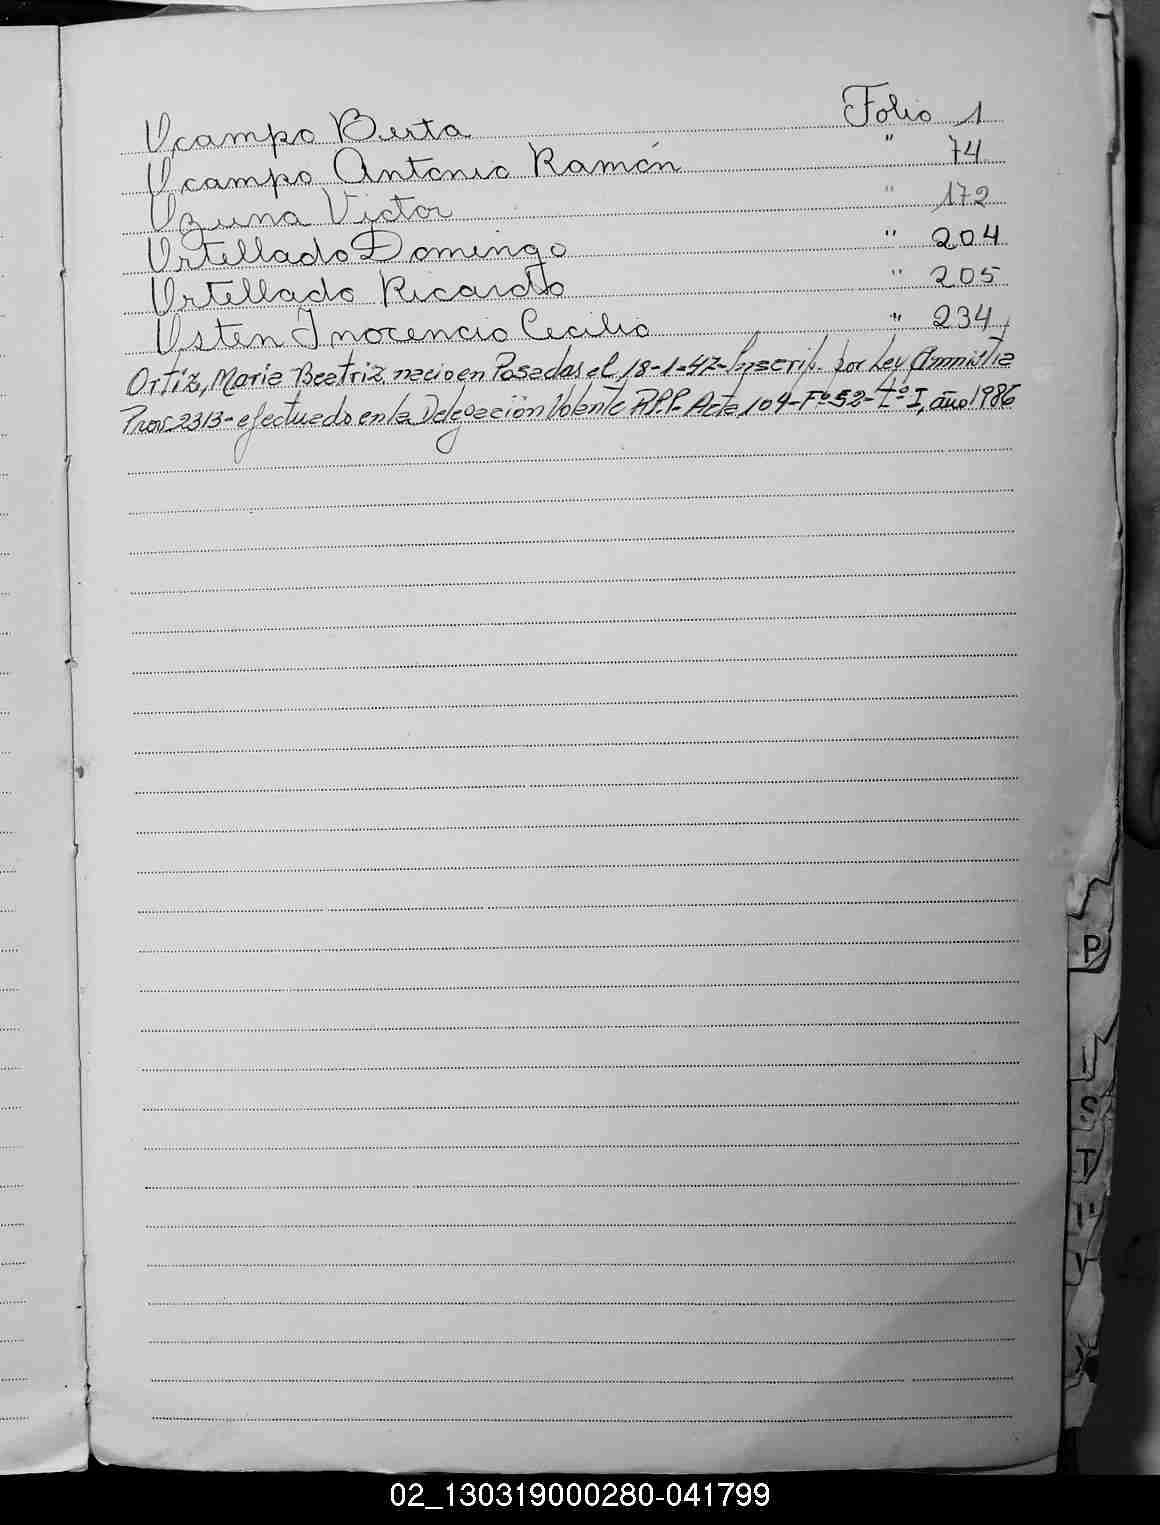 Ucampo Berta Folio 1
Ucampo Antonio Ramón " 74
Uzuna Victor " 172
Urtellado Domingo " 204
Urtellado Ricardo " 205
Usten Inocencio Cecilio " 234
Ortiz, Maria Beatriz nacio en Posadas el 18-1-47- Inscrip. por Ley Amnistia
Prov 2313- efectuado en la Delegación Volante R.P.P- Acta 104-Fº52-Tº I, año 1986
P
S
T
U
V
02_130319000280-041799